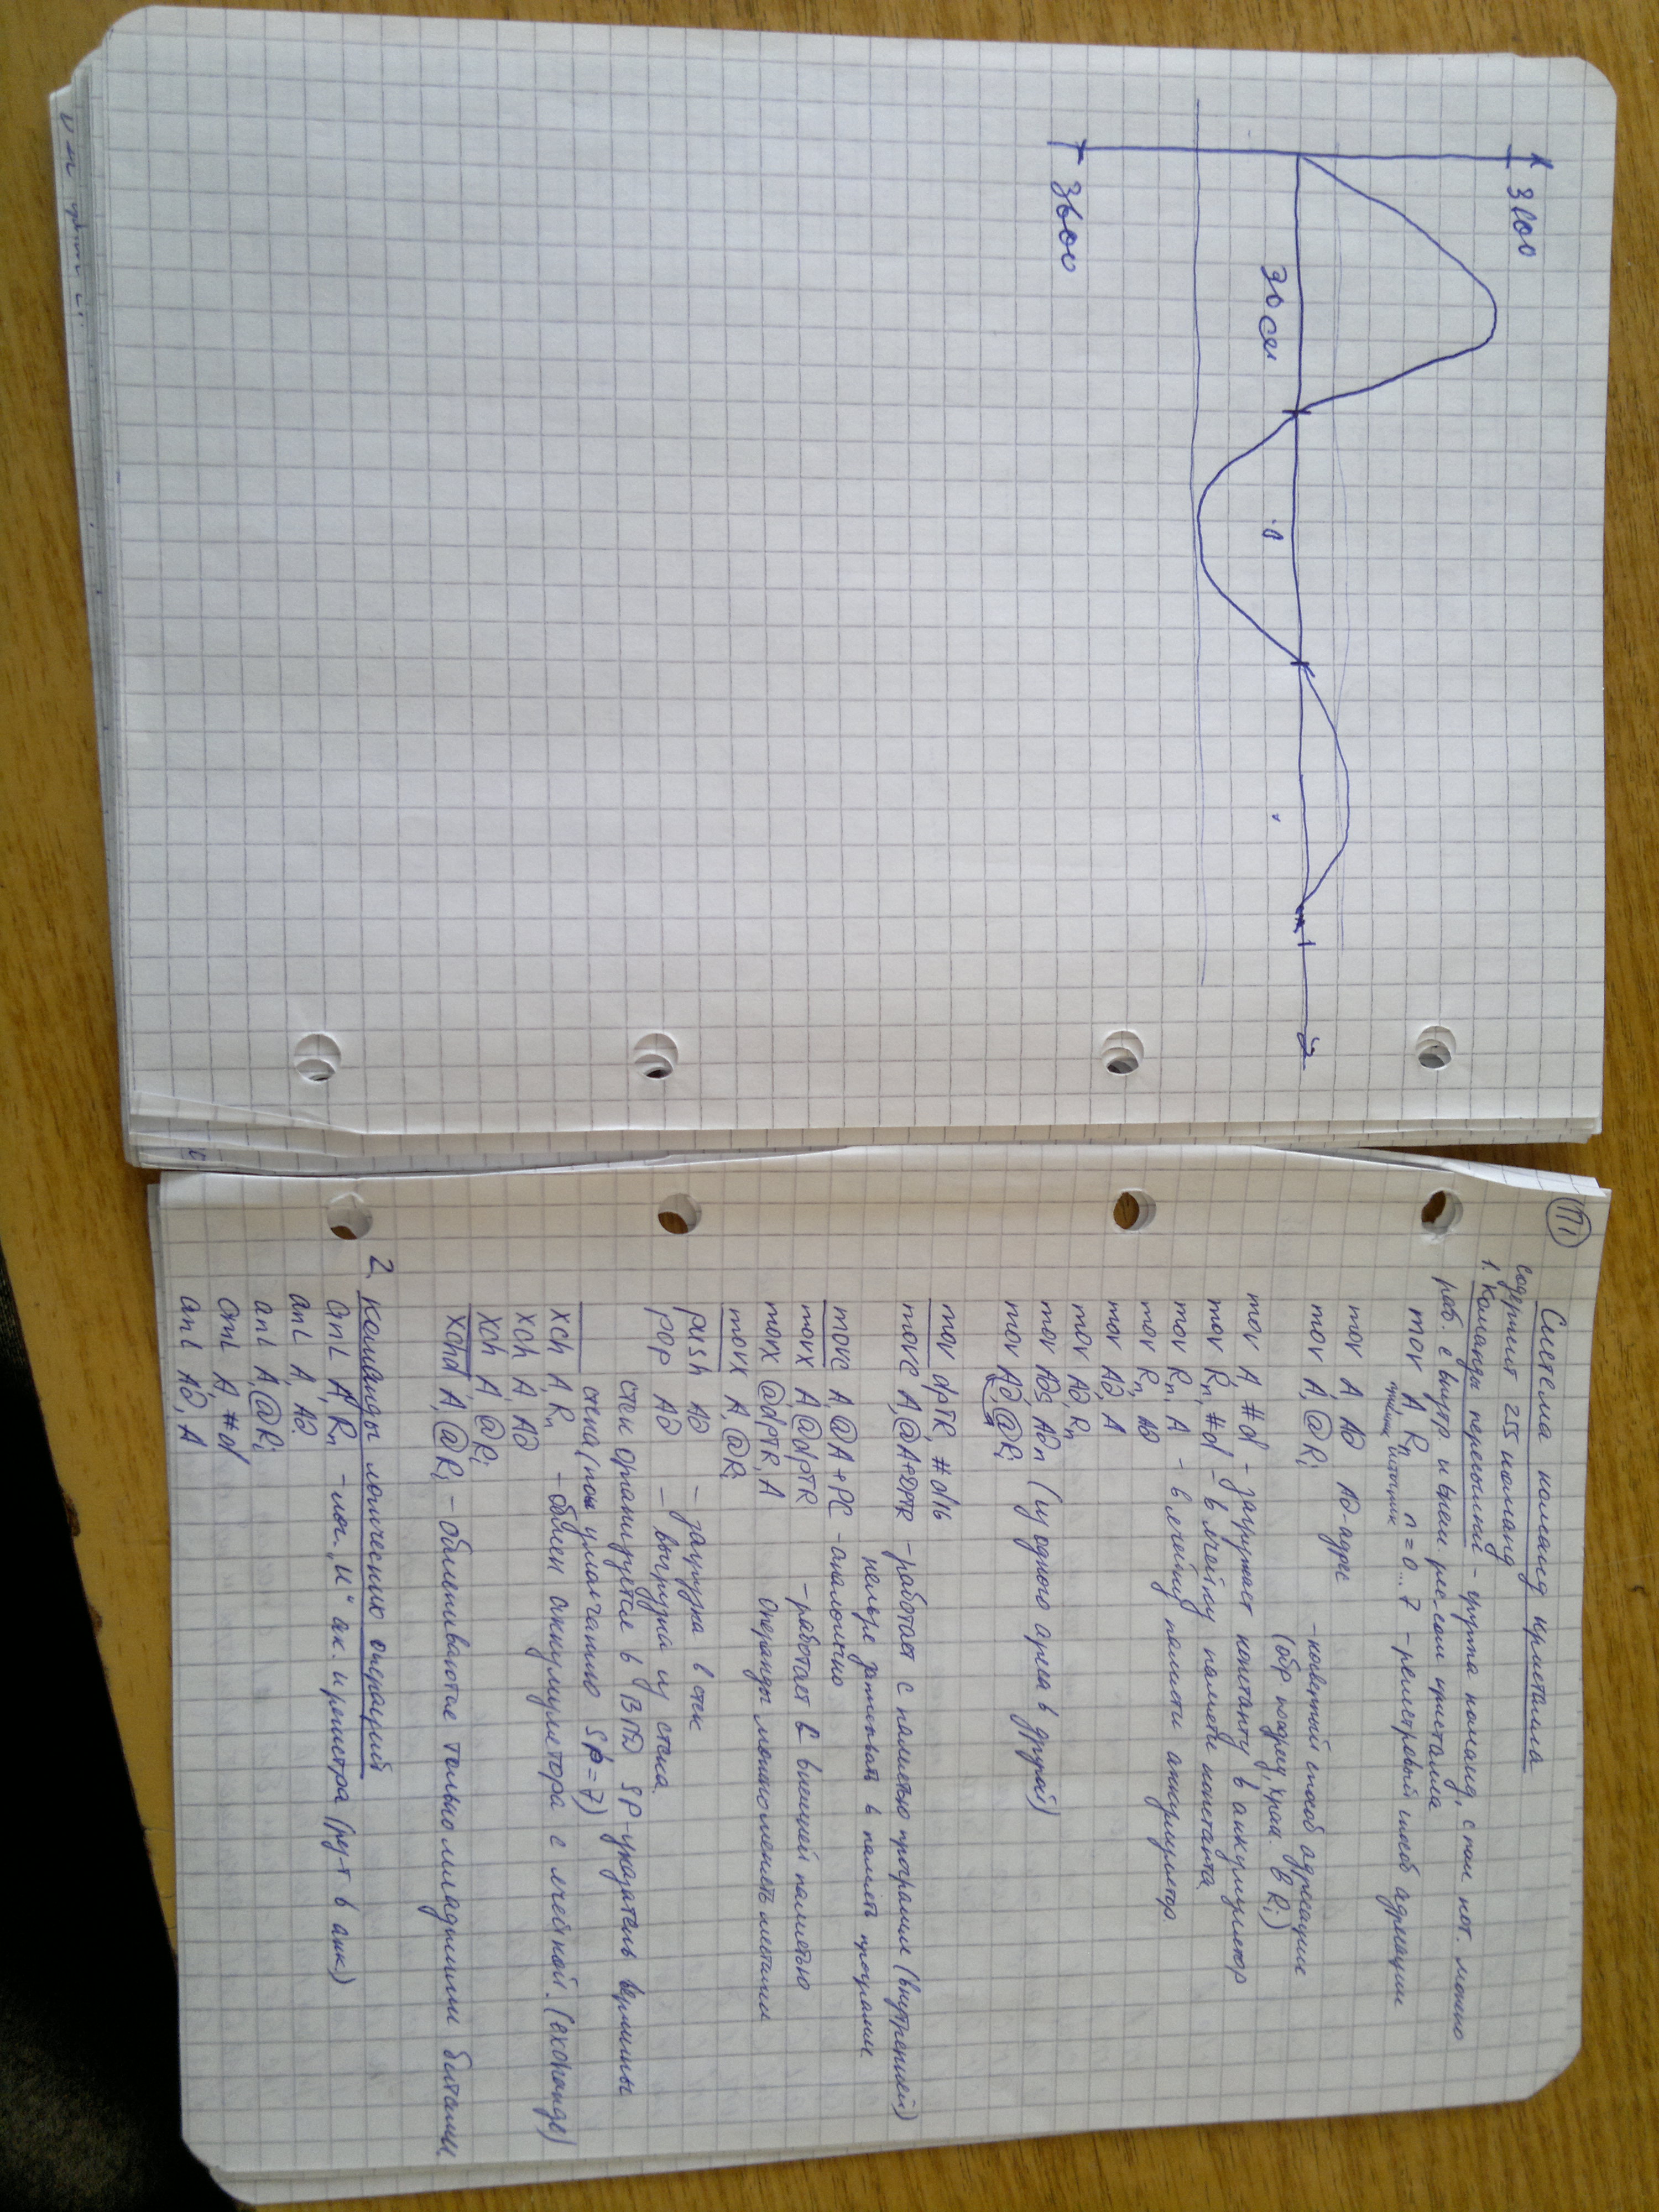 3600
30 см
3600
П1
Система команд кристалла
содержит 255 команд
1. Команды пересылки – группа команд, с пом. кот. можно
раб. с внутр и внеш. рес-сами кристалла
mov A, Rn n = 0...7 – регистровый способ адресации
приёмник источник
mov A, AD AD-адрес
mov A, @Ri – косвенный способ адресации
(обр по адресу, хран. в Ri)
mov A, #d – загружает константу в аккумулятор
mov Rn, #d – в ячейку памяти константа
mov Rn, A – в ячейку памяти аккумулятор
mov Rn, AD
mov AD, A
mov AD, Rn
mov ADs, ADn (из одного адреса в другой)
mov AD, @Ri
mov dpTR, #d16
movc A, @A+DPTR – работает с памятью программ (внутренней)
нельзя записывать в память программ
movc A, @A+PC – аналогично
movx A, @dpTR – работает с внешней памятью
movx @dpTR, A Операнды можно менять местами
movx A, @Ri
push AD – загрузка в стек
pop AD – выгрузка из стека
стек организуется в ВПД SP-указатель вершины
стека (по умолчанию SP=7)
xch A, Rn – обмен аккумулятора с ячейкой. (exchange)
xch A, AD
xch A, @Ri
xchd A, @Ri – обмениваются только младшими битами
2. Команды логических операций
anl A, Rn – лог. „И“ ак. и регистра (рез-т в акк.)
anl A, AD
anl A, @Ri
anl A, #d
anl AD, A